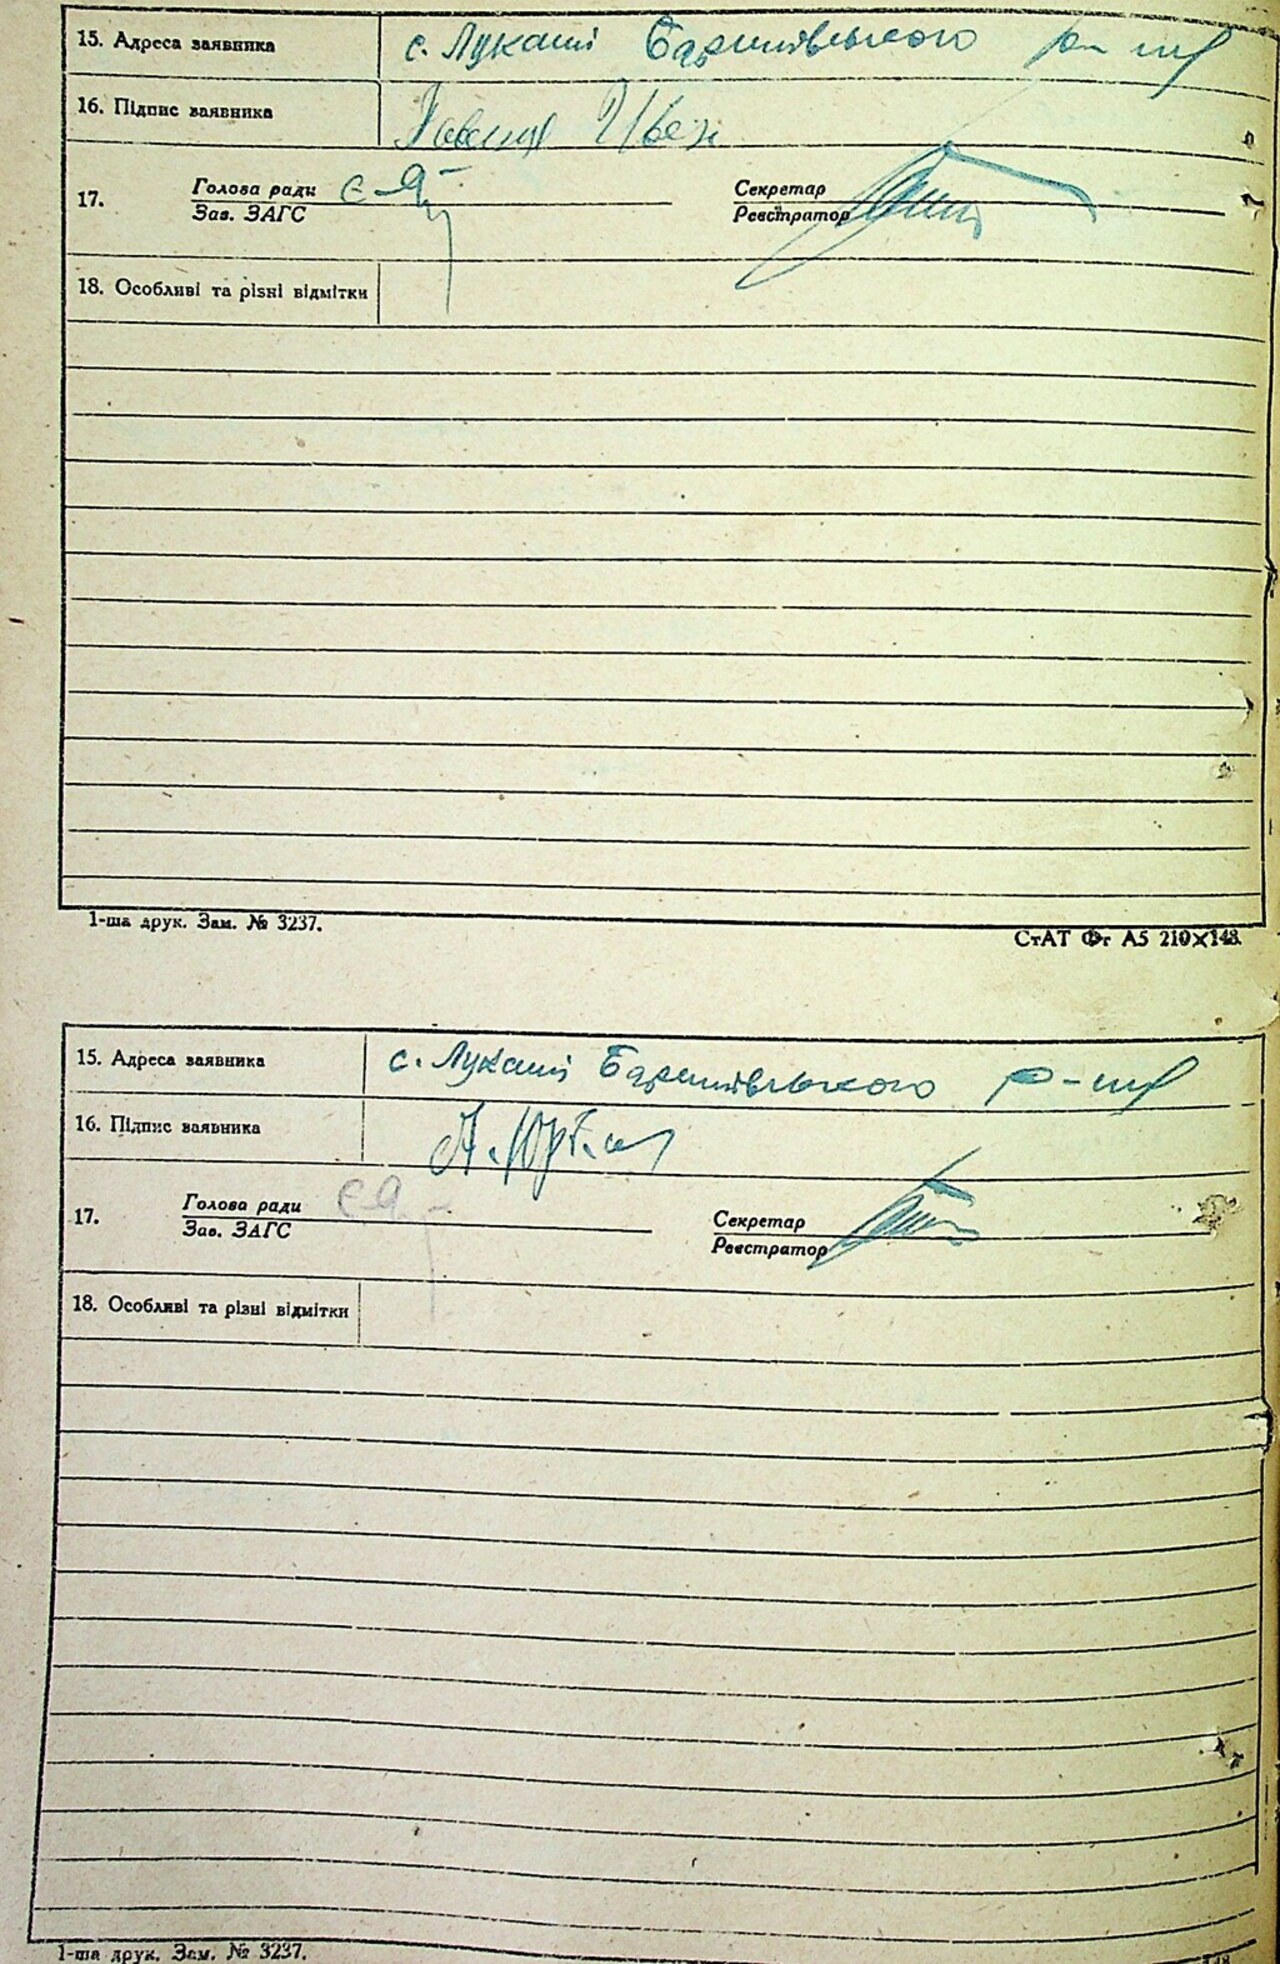 15. Адреса заявника с. Лукаші Баришівського р-ну
16. Підпис заявника
17. Голова ради Секретар
Зав. ЗАГС Реєстратор
18. Особливі та різні відмітки
1-ша друк. Зам. № 3237.
СтАТ Фг А5 210×148.
15. Адреса заявника с. Лукаші Баришівського р-ну
16. Підпис заявника
17. Голова ради Секретар
Зав. ЗАГС Реєстратор
18. Особливі та різні відмітки
1-ша друк. Зам. № 3237.